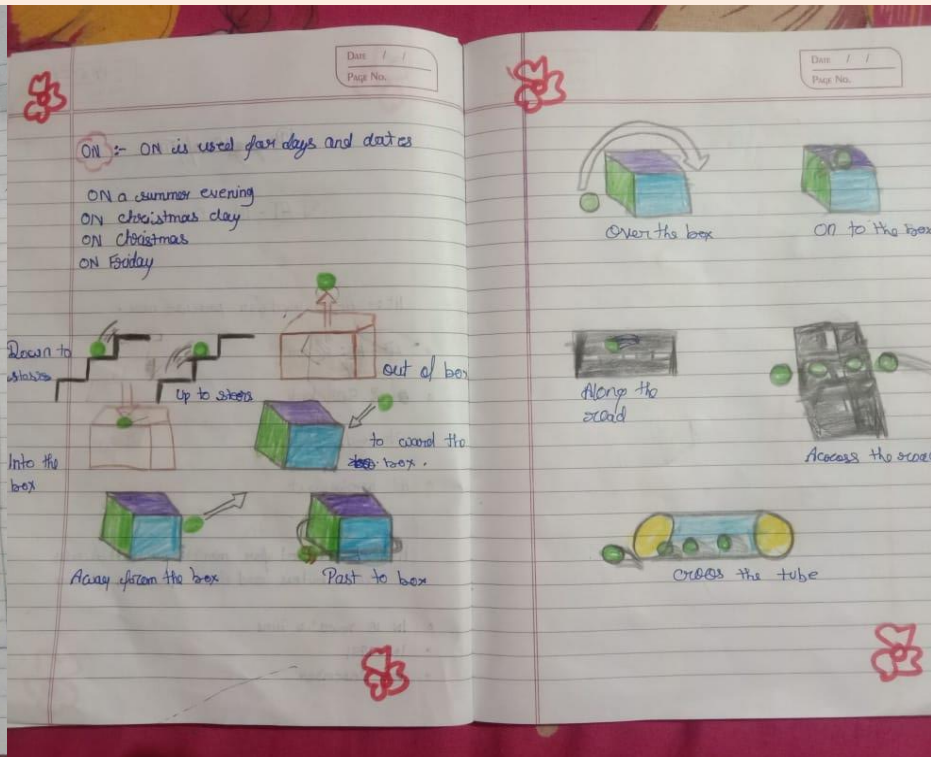 DATE / /
PAGE NO.
ON :- ON is used for days and dates
ON a summer evening
ON christmas day
ON Christmas
ON Friday
Down to
stairs
Up to steers
out of box
Into the
box
to coward the
box.
Away from the box
Past to box
DATE / /
PAGE NO.
Over the box
On to the box
Along the
road
Across the road
croos the tube